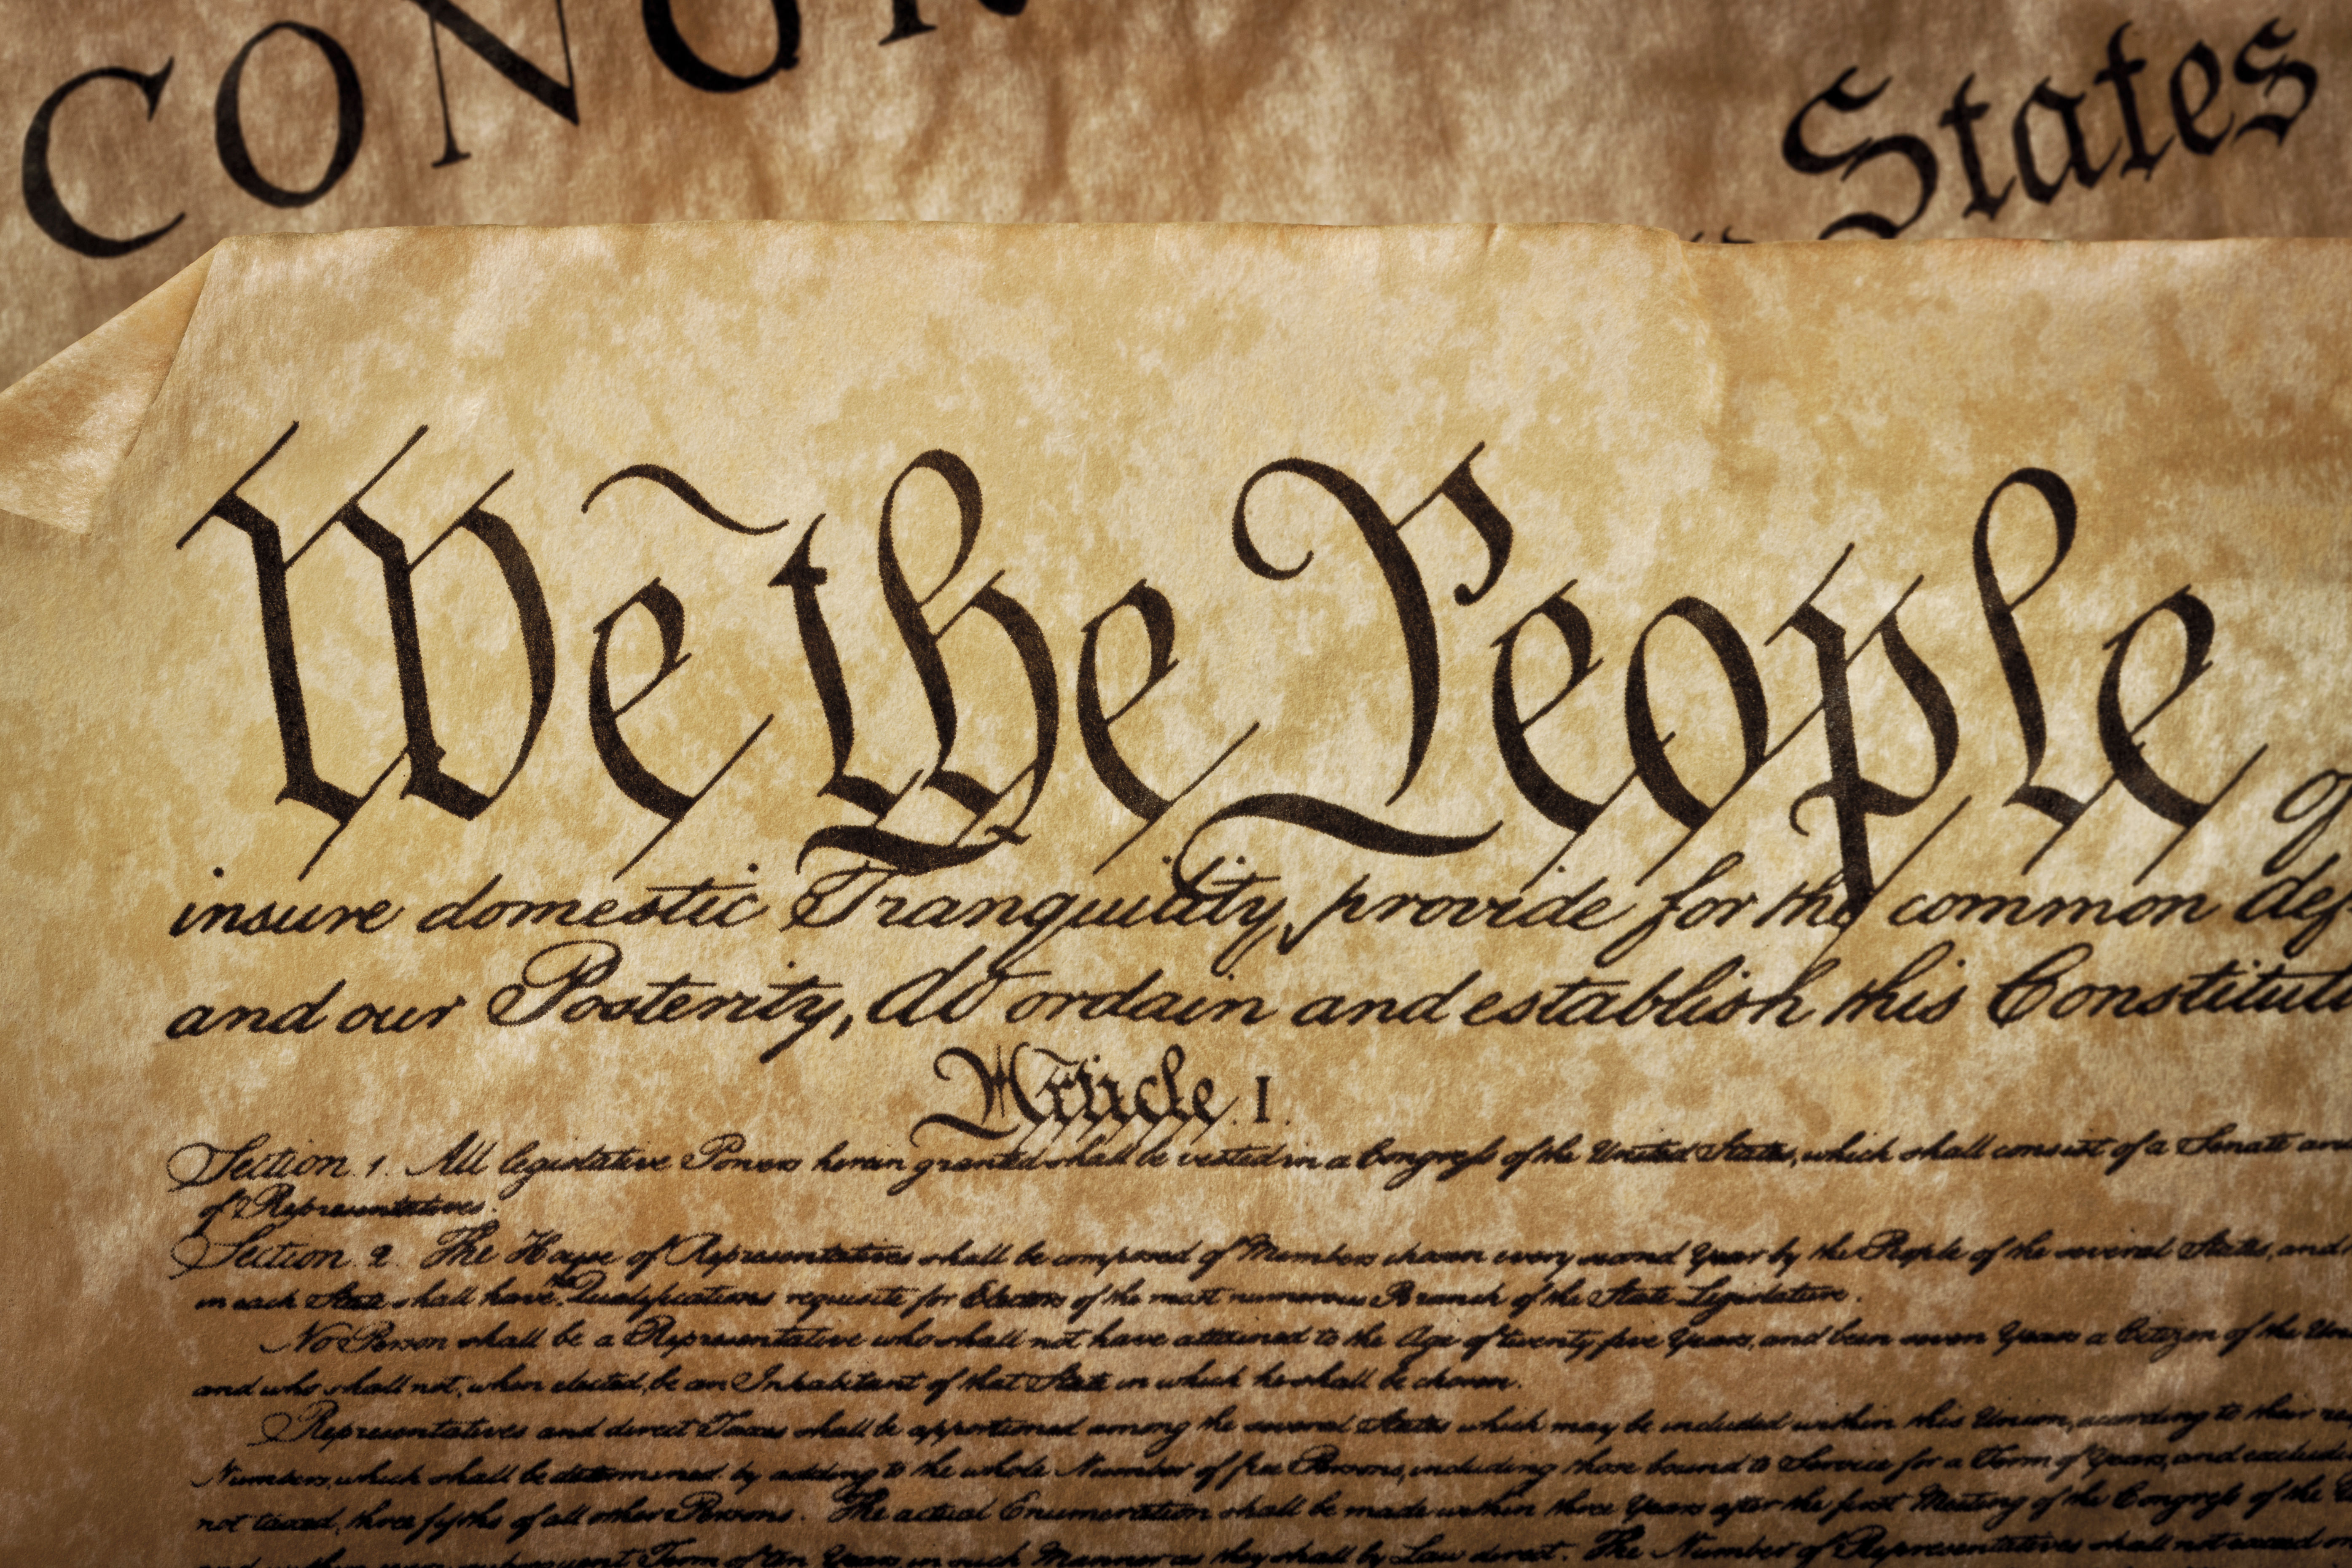 CONGR
States
We the People of
insure domestic Tranquility, provide for the common def
and our Posterity, do ordain and establish this Constituti
Article. I.
Section. 1. All legislative Powers herein granted shall be vested in a Congress of the United States, which shall consist of a Senate and
of Representatives.
Section. 2. The House of Representatives shall be composed of Members chosen every second Year by the People of the several States, and
in each State shall have the Qualifications requisite for Electors of the most numerous Branch of the State Legislature.
No Person shall be a Representative who shall not have attained to the Age of twenty five Years, and been seven Years a Citizen of the Un
and who shall not, when elected, be an Inhabitant of that State in which he shall be chosen.
Representatives and direct Taxes shall be apportioned among the several States which may be included within this Union, according to their re
Numbers, which shall be determined by adding to the whole Number of free Persons, including those bound to Service for a Term of Years, and exclud
not taxed, three fifths of all other Persons. The actual Enumeration shall be made within three Years after the first Meeting of the Congress of the
and within every subsequent Term of ten Years, in such Manner as they shall by Law direct. The Number of Representatives shall not exceed